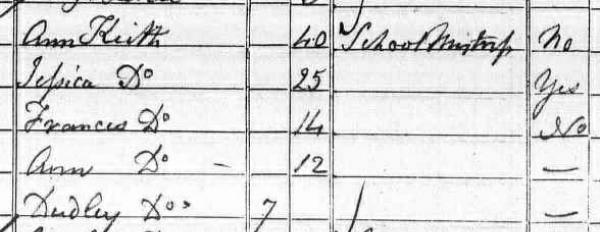 Ann Keith 40 School Mistress No
Jessica Do 25 Yes
Frances Do 14 No
Ann Do - 12 —
Dudley Do 7 —